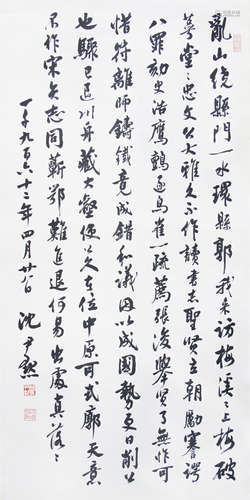 亂山繞縣門一水環縣郭我來訪梅溪溪上梅破
萼堂堂忠文公大雅久不作讀書志聖賢立朝勵謇諤
八罪劾史浩鷹鸇逐鳥雀一疏薦張浚舉了無怍可
惜符離師鑄鐵竟成錯和議因以成國勢日削公
也驟已退舟藏大壑使公久在位中原可式廓天意
不作宋公志同蘄鄂難進退何易出處真落落
一千九百六十二年四月廿日 沈尹默